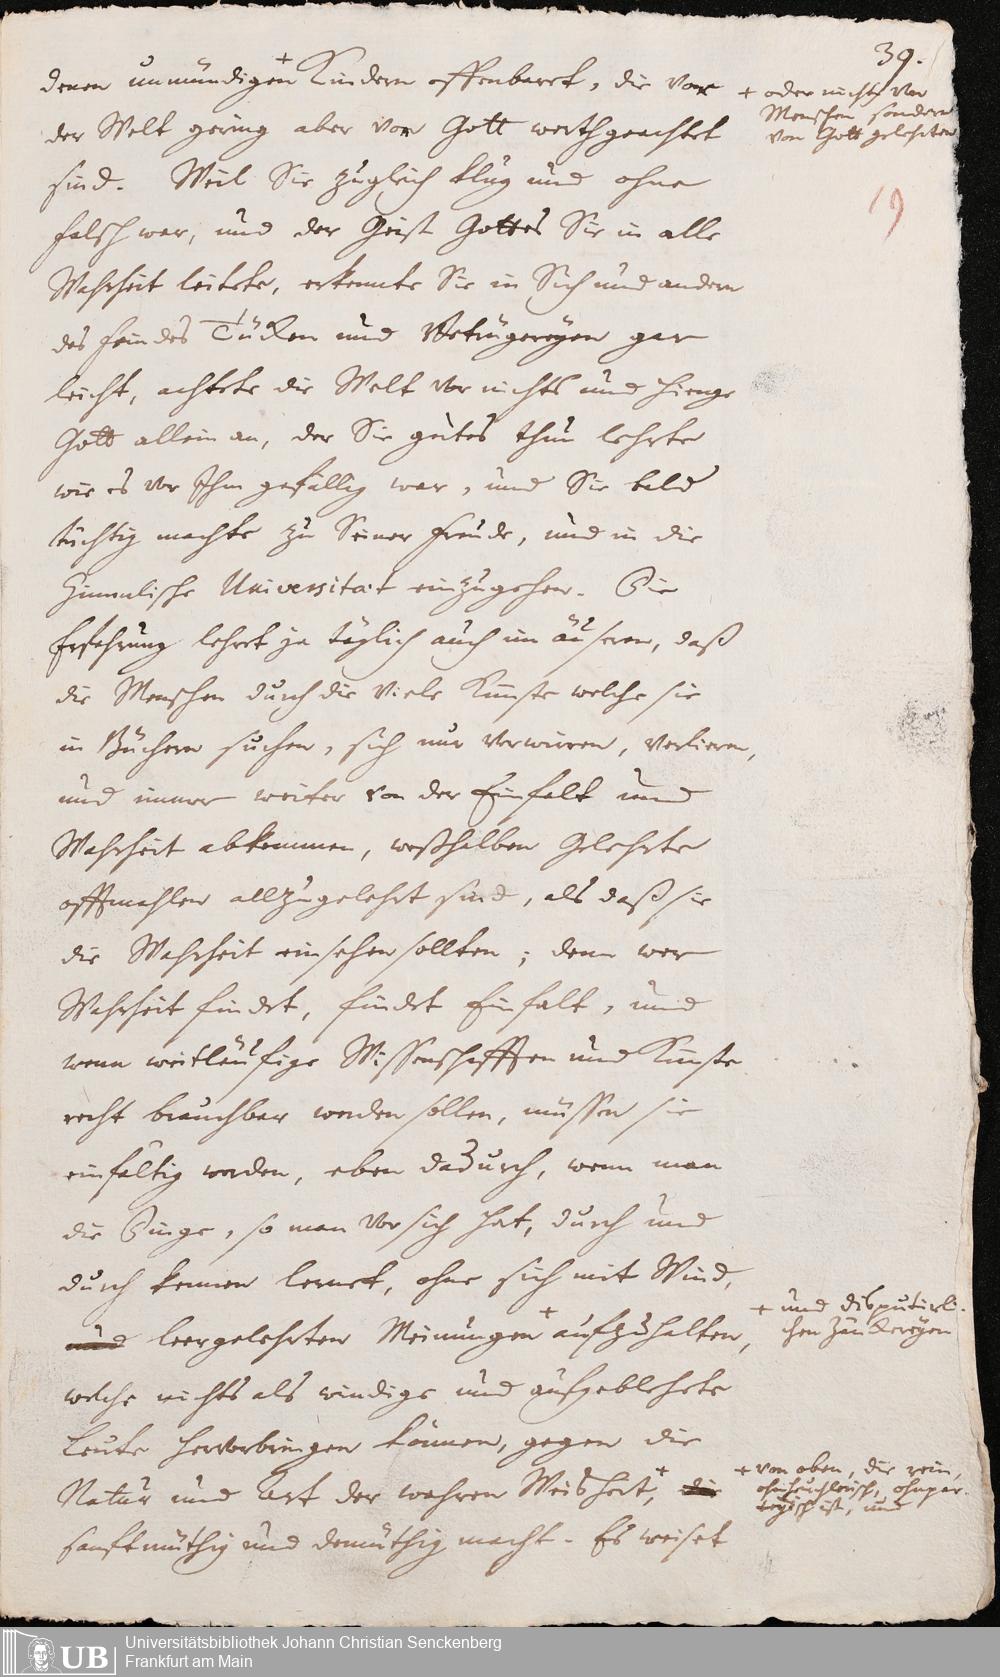 39.
denen unmündigen + Kindern offenbaret, die vor
der Welt gering aber vor Gott werthgeachtet
sind. Weil Sie zugleich klug und ohne
falsch war, und der Geist Gottes Sie in alle
Wahrheit leitete, erkennte Sie in Sich und andern
des Feindes Tücken und Betrügereyen gar
leicht, achtete die Welt vor nichts und hienge
Gott allein an, der Sie gutes thun lehrte
wie es vor Ihm gefällig war, und Sie bald
tüchtig machte zu Seiner Freude, und in die
Himmlische Universitat einzugehen. Die
Erfahrung lehret ja täglich auch im äuseren, daß
die Menschen durch die viele Künste welche sie
in Büchern suchen, sich nur verwirren, verlieren,
und immer weiter von der Einfalt und
Wahrheit abkommen, weßhalben Gelehrte
offtmahlen allzugelehrt sind, als daß sie
die Wahrheit einsehen sollten; denn wer
Wahrheit findet, findet Einfalt, und
wenn weitläufige Wissenschafften und Künste
recht brauchbar werden sollen, müssen sie
einfältig werden, eben dadurch, wenn man
die Dinge, so man vor sich hat, durch und
durch kennen lernet, ohne sich mit Wind,
und leergelehrten Meinungen + aufzuhalten,
welche nichts als windige und aufgeblehete
Leute hervorbringen können, gegen die
Natur und Art der wahren Weisheit, + die
sanftmüthig und demüthig macht. Es weiset
+ oder nicht von
Menschen sondern
von Gott gelehrten
19
+ und disputirli-
chen Zänkereyen
+ von oben, die rein,
ohnheuchleisch, ohnpar-
teyisch ist, und
Universitätsbibliothek Johann Christian Senckenberg
Frankfurt am Main
UB